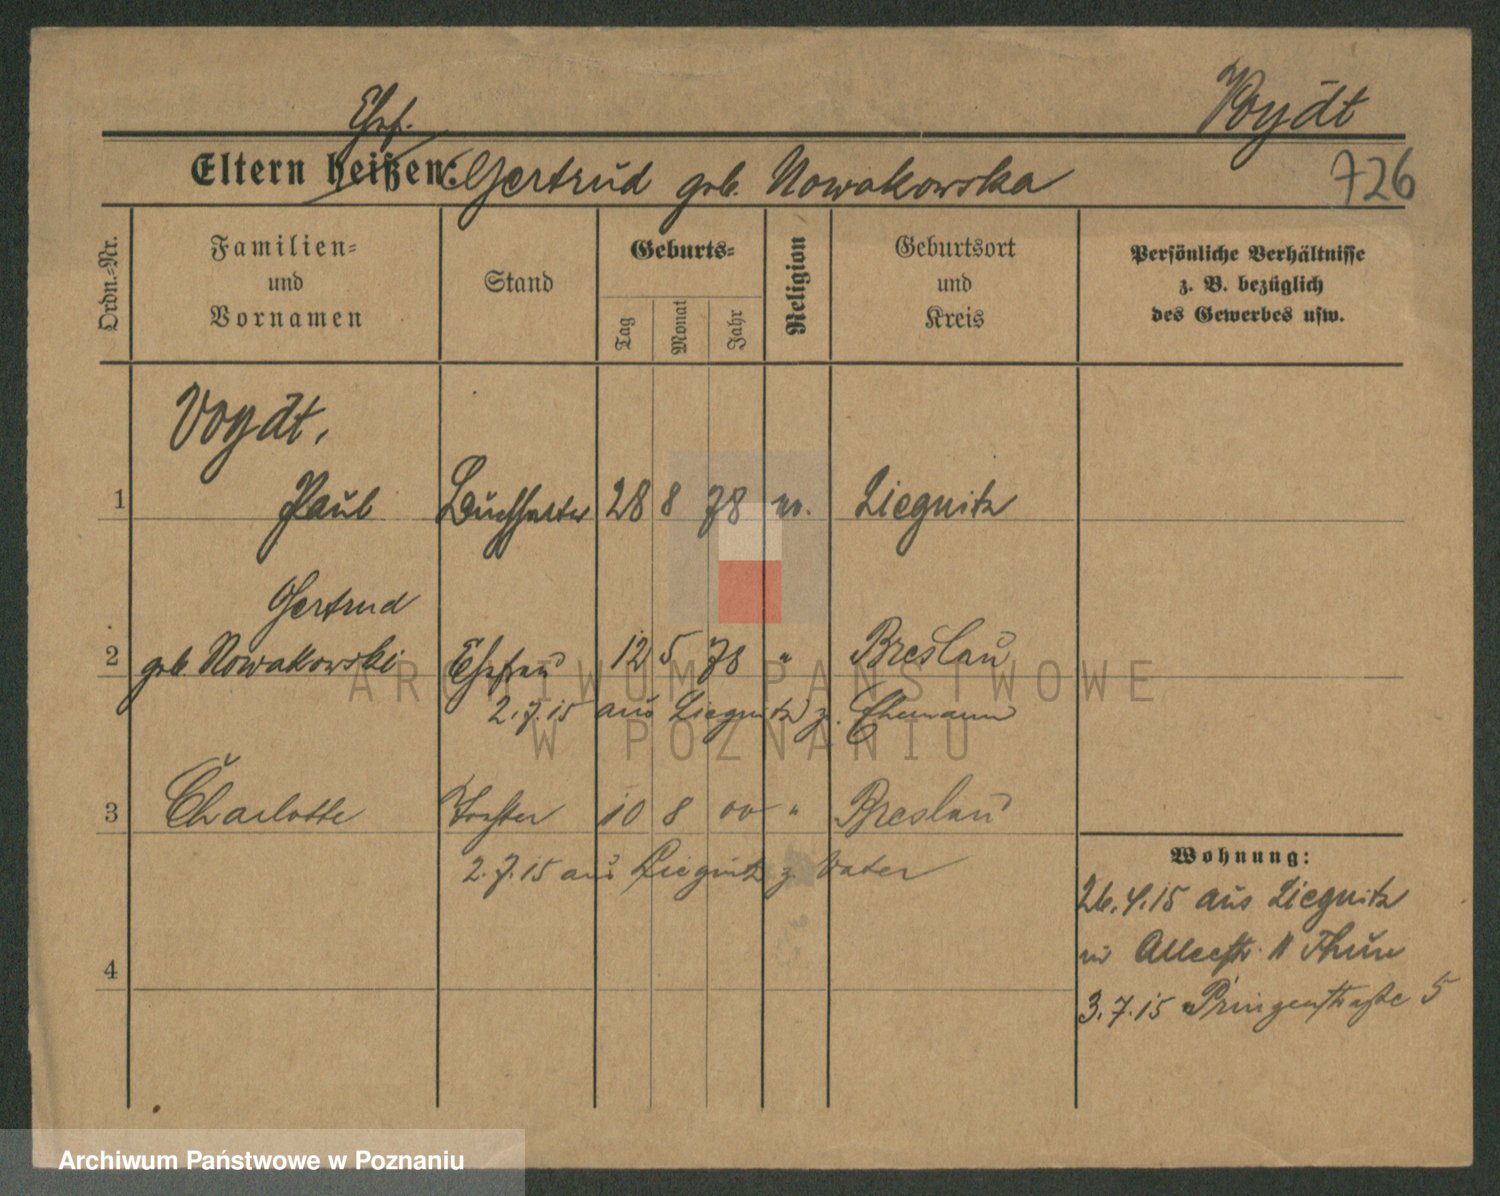 Voydt
Ehef.
Eltern heißen: Gertrud geb. Nowakowska
726
Ordn.=Nr.
Familien=
und
Vornamen
Stand
Geburts=
Tag
Monat
Jahr
Religion
Geburtsort
und
Kreis
Persönliche Verhältnisse
z. B. bezüglich
des Gewerbes usw.
Voydt,
1 Paul Buchhalter 28 8 78 ev. Liegnitz
Gertrud
2 geb. Nowakowski Ehefrau 12 5 78 " Breslau
2.7.15 aus Liegnitz z. Ehemann
3 Charlotte Tochter 10 8 00 " Breslau
2.7.15 aus Liegnitz z. Vater
4
Wohnung:
26.4.15 aus Liegnitz
Alleestr. 11
3.7.15 Prinzenstraße 5
ARCHIWUM PAŃSTWOWE
W POZNANIU
Archiwum Państwowe w Poznaniu